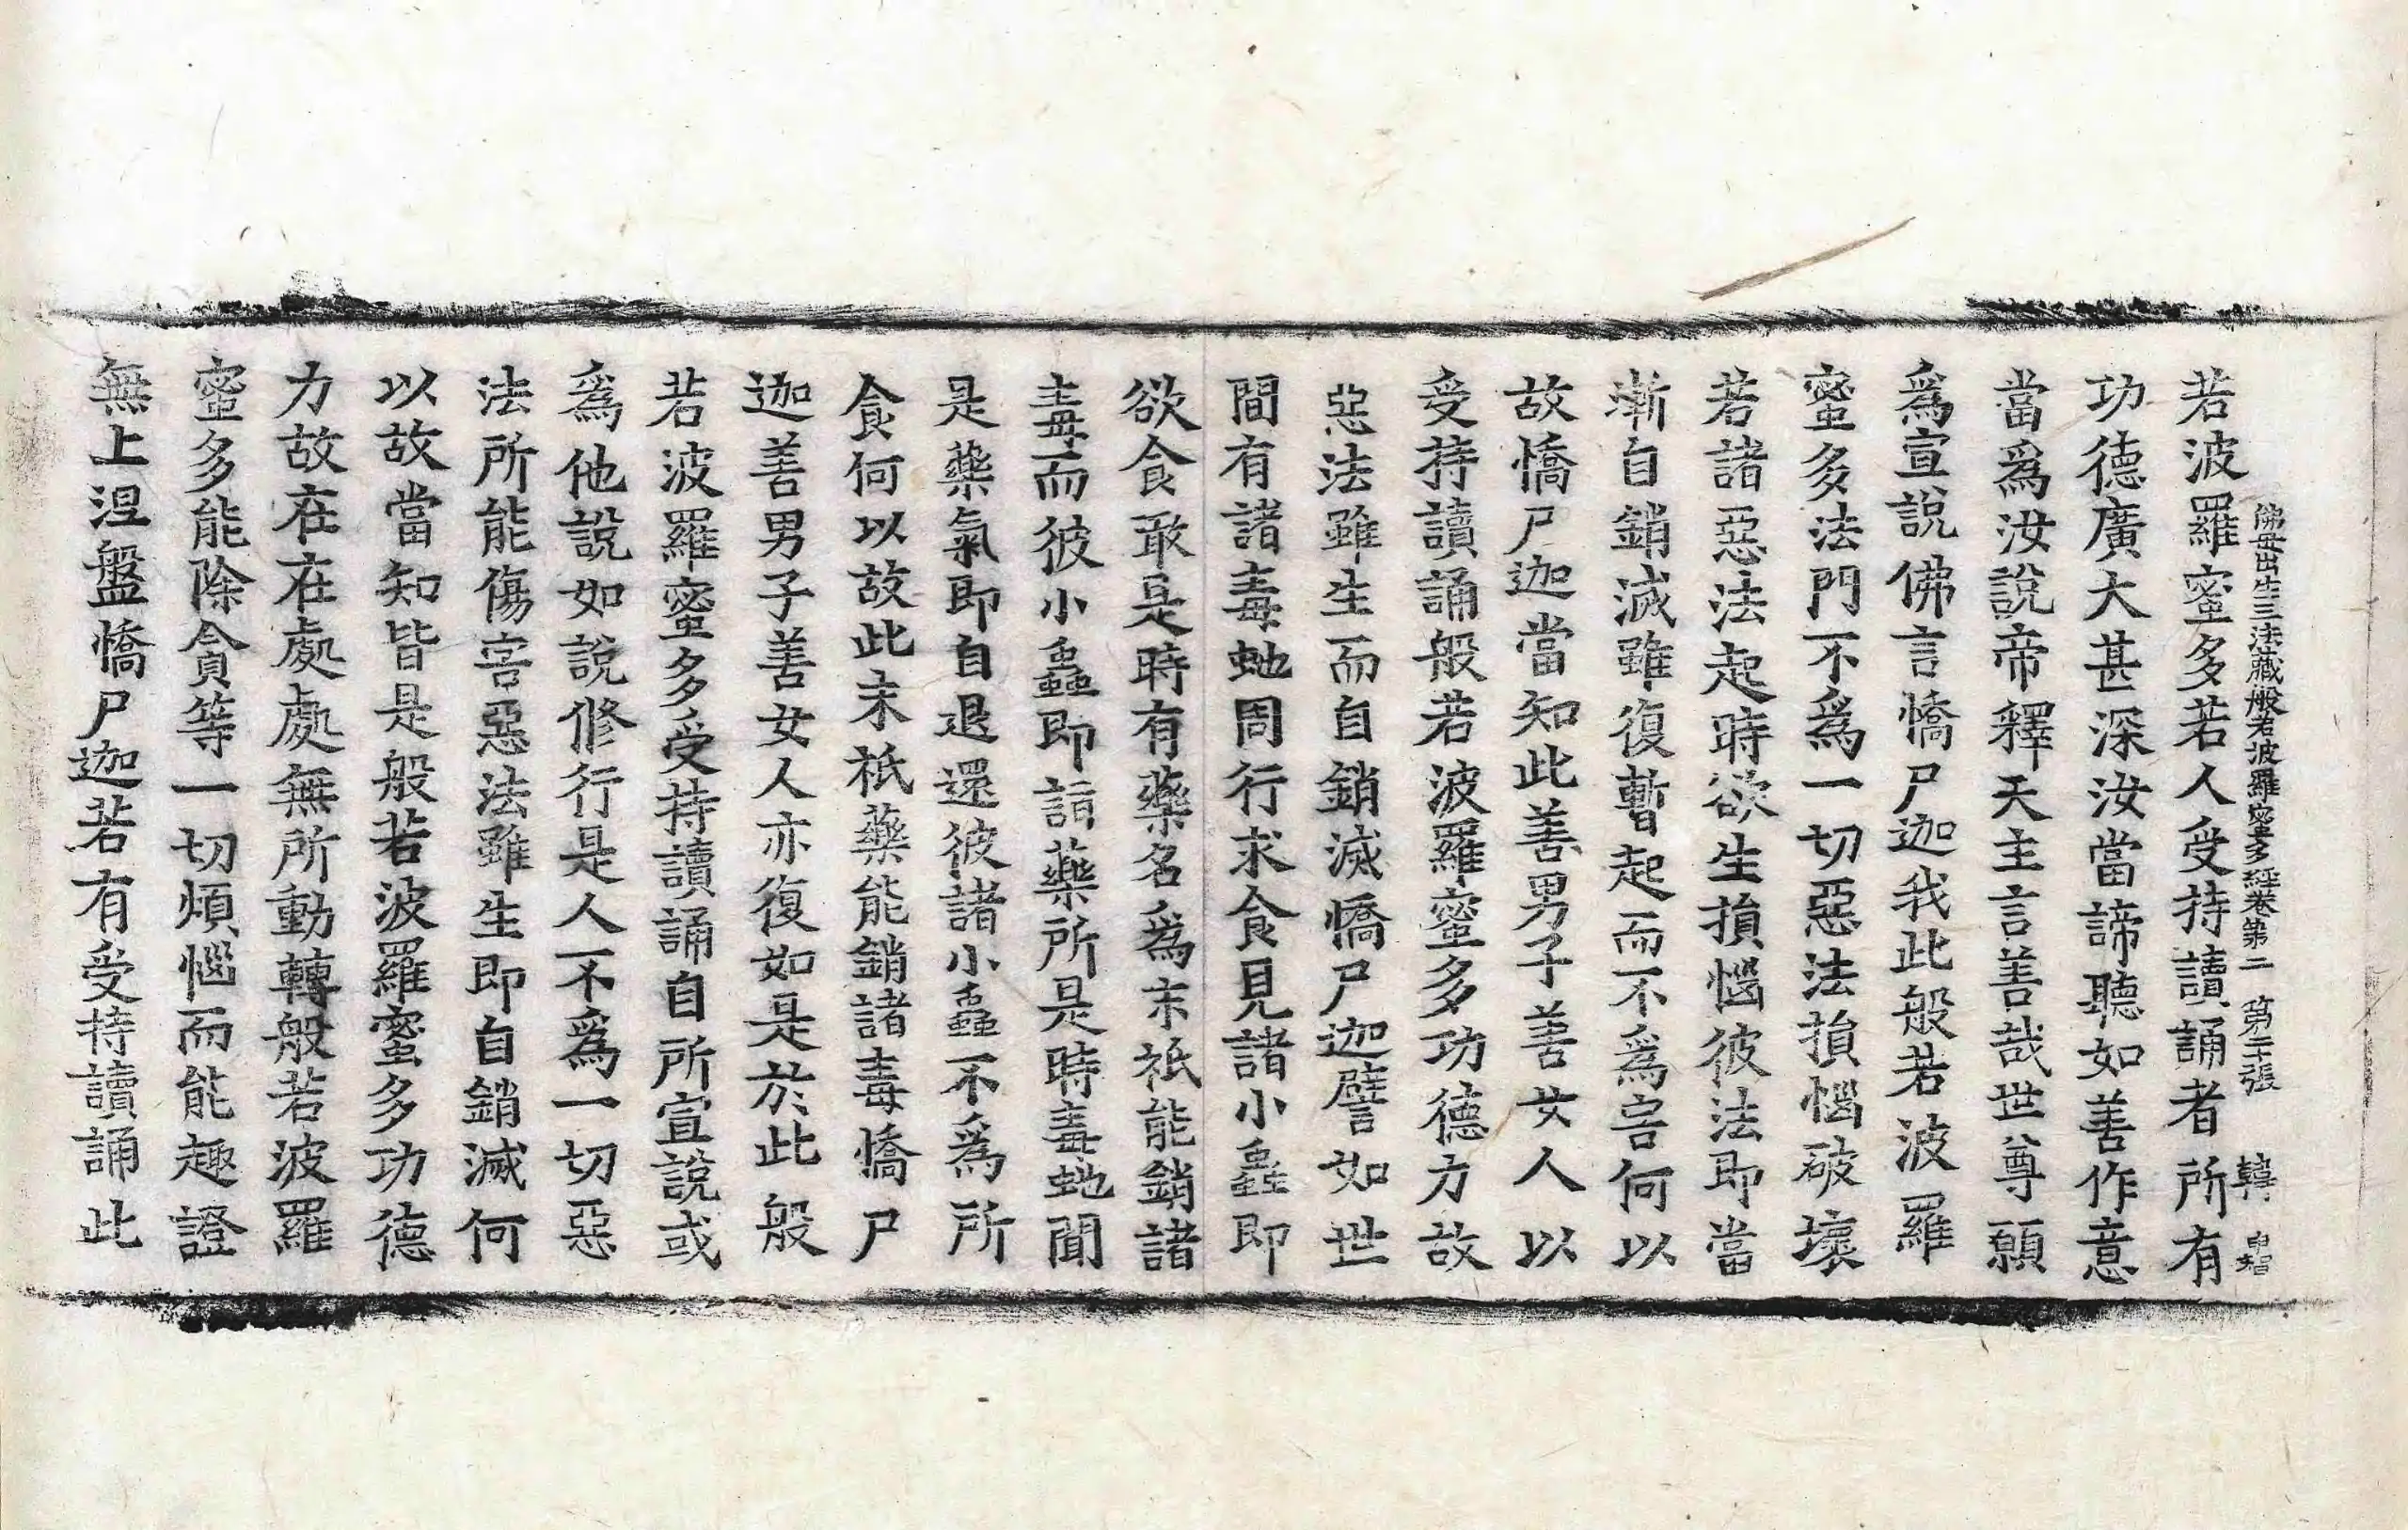 佛母出生三法藏般若波羅蜜多經卷第二 第二十張 轉 申智
若波羅蜜多若人受持讀誦者所有
功德廣大甚深汝當諦聽如善作意
當爲汝說帝釋天主言善哉世尊願
爲宣說佛言憍尸迦我此般若波羅
蜜多法門不爲一切惡法損惱破壞
若諸惡法起時欲生損惱彼法即當
漸自銷滅雖復暫起而不爲害何以
故憍尸迦當知此善男子善女人以
受持讀誦般若波羅蜜多功德力故
惡法雖生而自銷滅憍尸迦譬如世
間有諸毒虵周行求食見諸小蟲即
欲食敢是時有藥名爲末祇能銷諸
毒而彼小蟲即詣藥所是時毒虵聞
是藥氣即自退還彼諸小蟲不爲所
食何以故此末祇藥能銷諸毒憍尸
迦善男子善女人亦復如是於此般
若波羅蜜多受持讀誦自所宣說或
爲他說如說修行是人不爲一切惡
法所能傷害惡法雖生即自銷滅何
以故當知皆是般若波羅蜜多功德
力故在在處處無所動轉般若波羅
蜜多能除貪等一切煩惱而能趣證
無上涅盤憍尸迦若有受持讀誦此